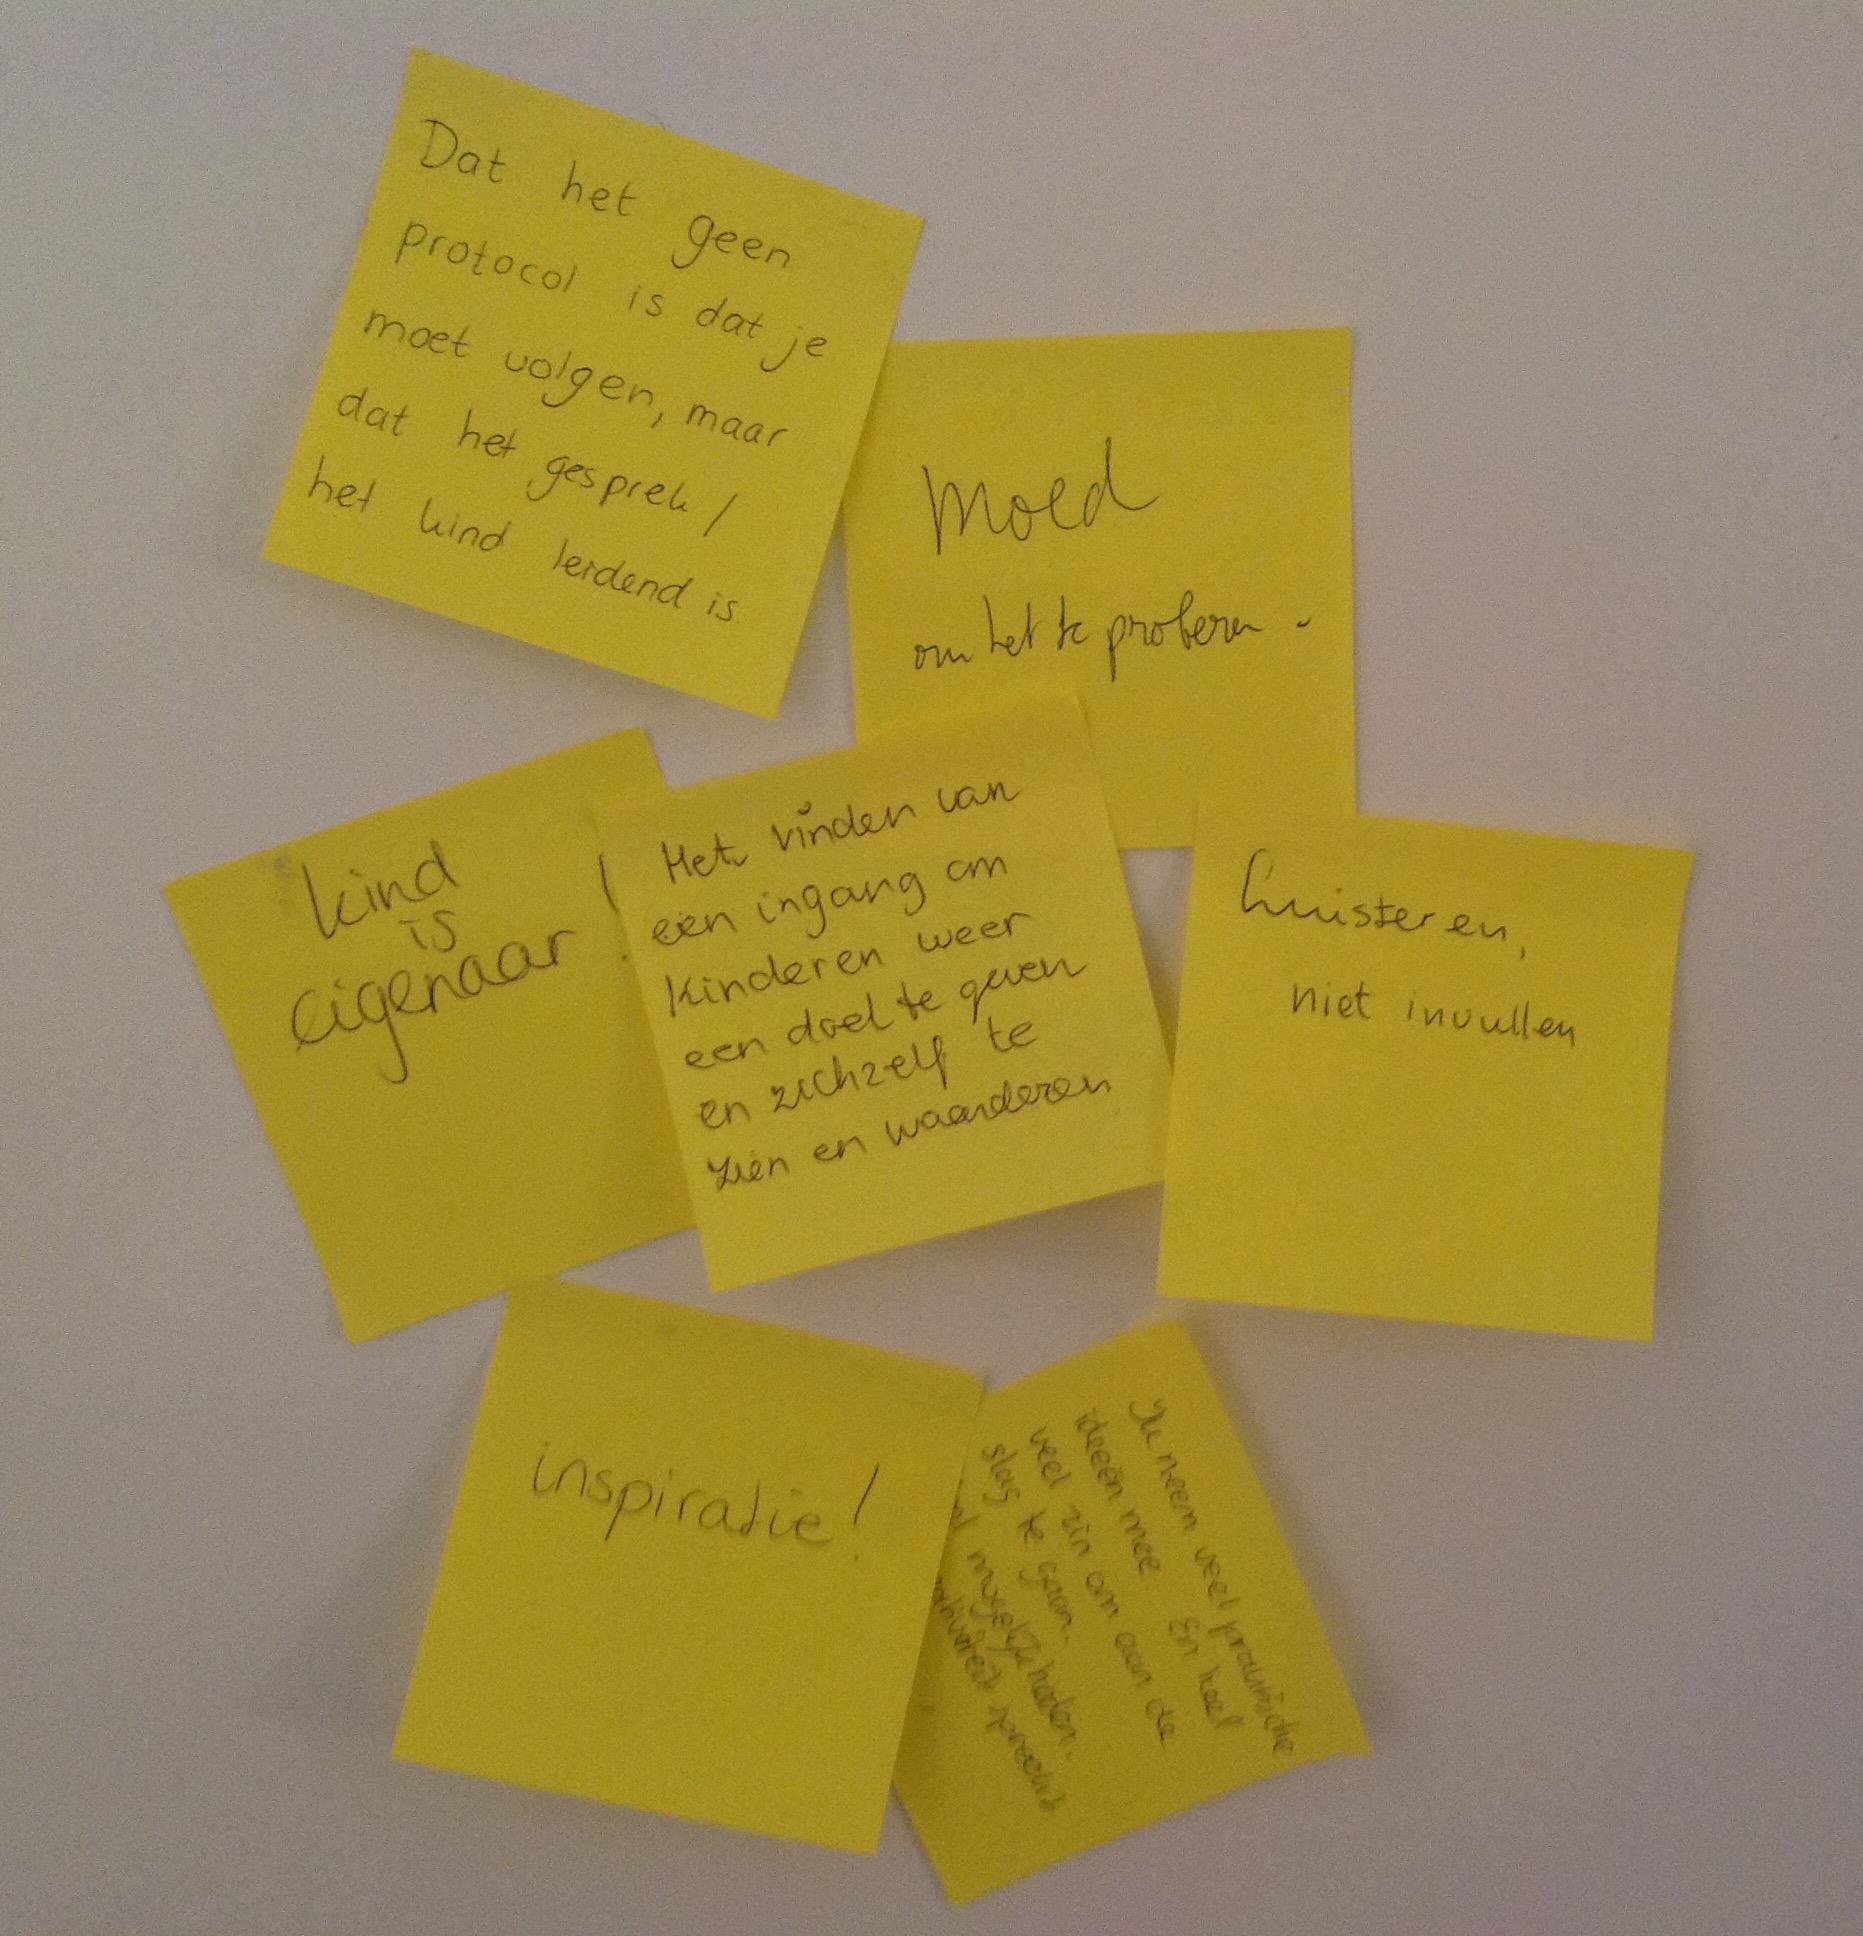 Dat het geen
protocol is dat je
moet volgen, maar
dat het gesprek/
het kind leidend is.
Moed
om het te proberen.
kind
is
eigenaar!
Het vinden van
een ingang om
kinderen weer
een doel te geven
en zichzelf te
zien en waarderen
Luisteren,
niet invullen
inspiratie!
Ik neem veel praktische
ideeën mee. En heel
veel zin om aan de
slag te gaan.
mogelijkheden.
spreekt